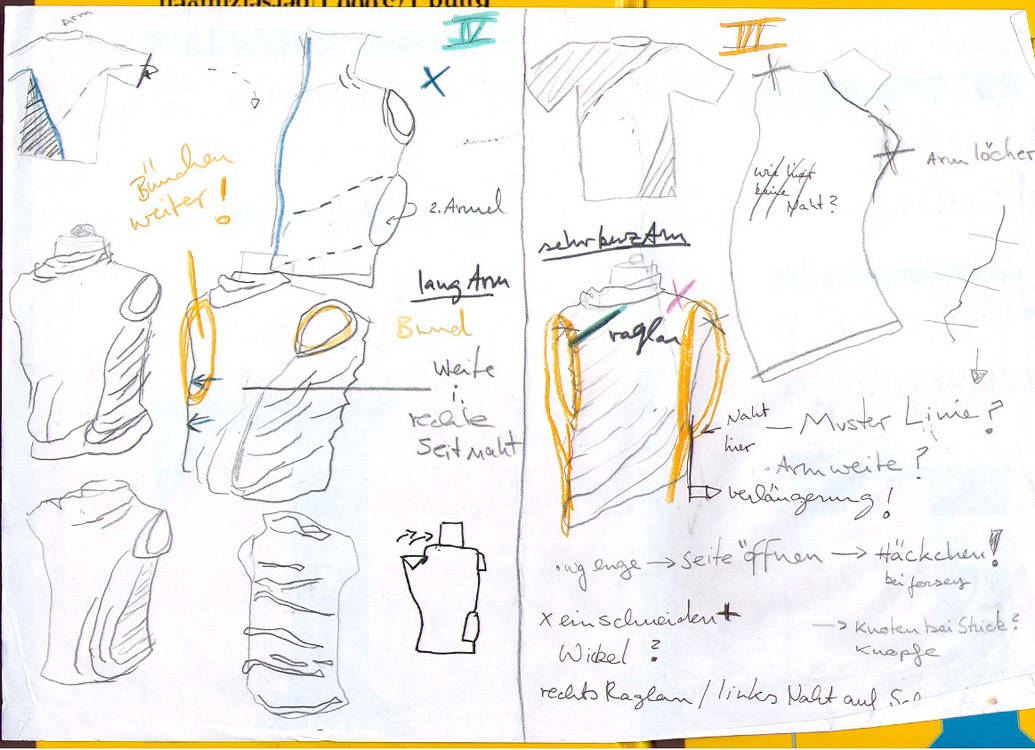 Arm
IV
Bündchen
weiter!
2. Ärmel
lang Arm
Bund
Weite
rechte
Seitnaht
III
Armlöcher
wie liegt
keine
Naht?
sehr kurz Arm
raglan
Naht
hier
Muster Linie?
Armweite?
verlängerung!
enge → Seite öffnen → Häckchen!
bei Jersey
x einschneiden +
Wickel?
→ Knoten bei Strick?
Knöpfe
rechts Raglan / links Naht auf